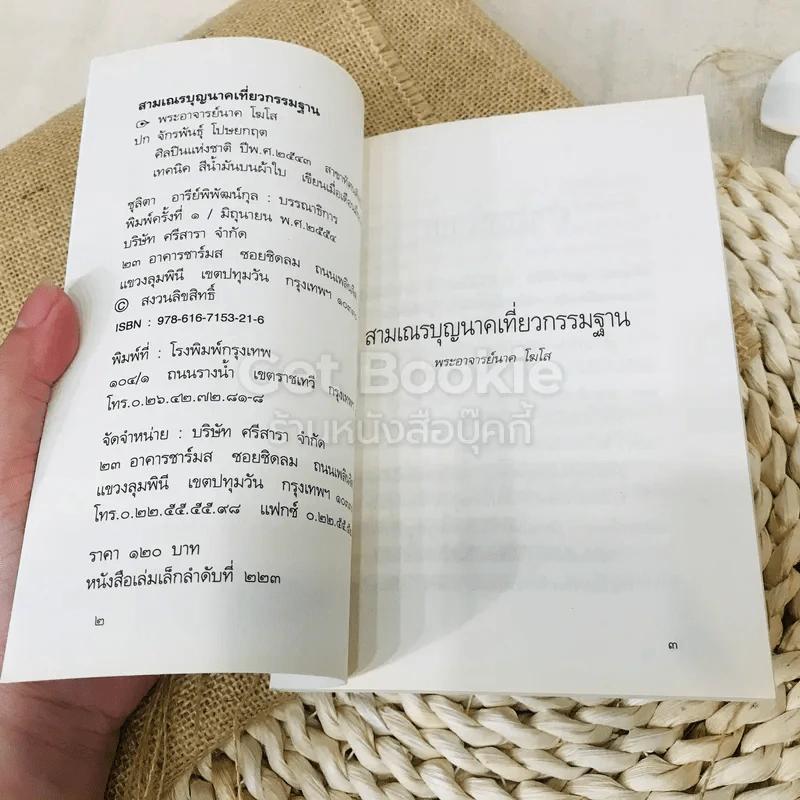 สามเณรบุญนาคเที่ยวกรรมฐาน
พระอาจารย์นาค โฆโส
ปก จักรพันธุ์ โปษยกฤต
ศิลปินแห่งชาติ ปีพ.ศ.๒๕๔๓
เทคนิค สีน้ำมันบนผ้าใบ
ชุลิตา อารีย์พิพัฒน์กุล : บรรณาธิการ
พิมพ์ครั้งที่ ๑ / มิถุนายน พ.ศ.๒๕๕๔
บริษัท ศรีสารา จำกัด
๒๓ อาคารชาร์มส ซอยชิดลม
แขวงลุมพินี เขตปทุมวัน กรุงเทพฯ
© สงวนลิขสิทธิ์
ISBN : 978-616-7153-21-6
พิมพ์ที่ : โรงพิมพ์กรุงเทพ
๑๐๔/๑ ถนนรางน้ำ เขตราชเทวี
โทร.๐.๒๖.๔๒.๗๒.๘๑-๘
จัดจำหน่าย : บริษัท ศรีสารา จำกัด
๒๓ อาคารชาร์มส ซอยชิดลม
แขวงลุมพินี เขตปทุมวัน กรุงเทพฯ
โทร.๐.๒๒.๕๕.๕๕.๙๘ แฟกซ์
ราคา ๑๒๐ บาท
หนังสือเล่มเล็กลำดับที่ ๒๒๓
๒
สามเณรบุญนาคเที่ยวกรรมฐาน
พระอาจารย์นาค โฆโส
๓
Got Bookie
ร้านหนังสือบุ๊คกี้